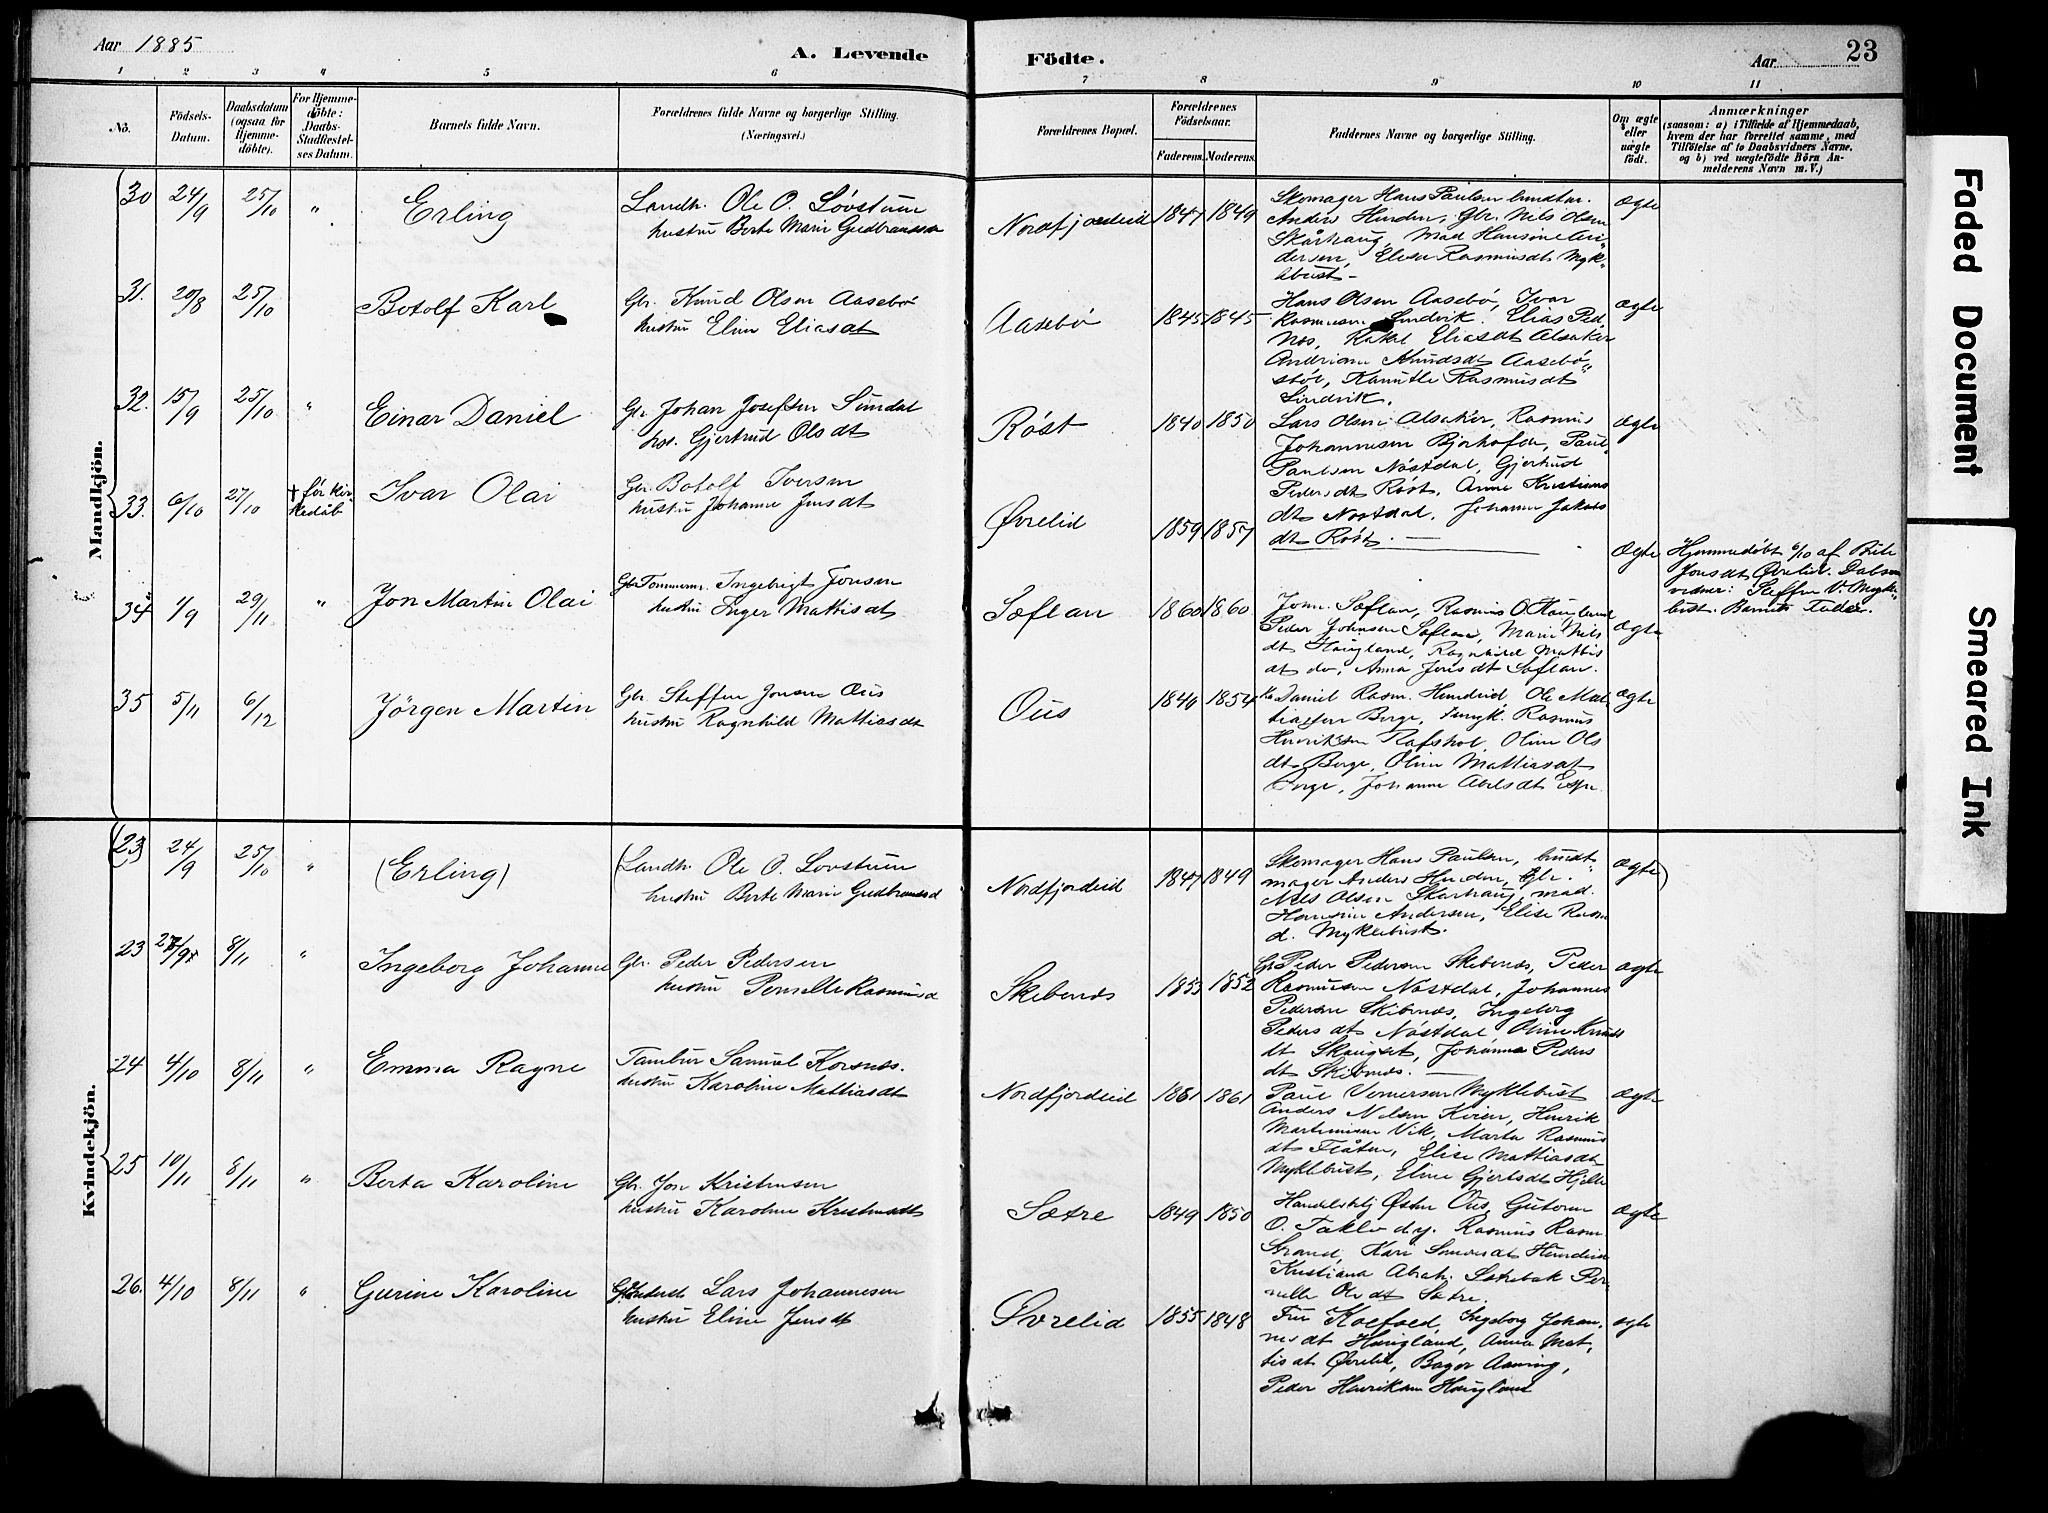 Aar 1885
A. Levende
Födte.
Aar
23
1 2 3 4 5 6 7 8 9 10 11
No.
Födsels-Datum.
Daabsdatum (ogsaa for Hjemme-döbte).
For Hjemme-döbte: Daabs-Stadfæstel-ses Datum.
Barnets fulde Navn.
Forældrenes fulde Navne og borgerlige Stilling. (Næringsvei.)
Forældrenes Bopæl.
Forældrenes Födselsaar.
Faderens. Moderens.
Faddernes Navne og borgerlige Stilling.
Om ægte eller uægte födt.
Anmærkninger
(saasom: a) i Tilfælde af Hjemmedaab,
hvem der har forrettet samme, med
Tilföielse af to Daabsvidners Navne.
og b) ved uægtefödte Börn An-
melderens Navn m. V.)
Mandkjön.
30 24/9 25/10 " Erling
Landh. Ole O. Lövstuen
hustru Berte Marie Gudbrandsd
Nordfjordeid 1847 1849
Skomager Hans Paulsen bundtm.
Anders Hunden, Gbr. Nils Olsen
Skårhaug, Mad Hansine An-
dersen, Elise Rasmusdt Myk-
lebust
ægte
31. 20/8 25/10 Botolf Karl
Gbr. Knud Olsen Aasebö
hustru Eline Eliasdt
Aasebö 1845 1845
Hans Olsen Aasebö, Ivar
Rasmusen Lindvik. Elias Ped.
Nos, Rakel Eliasdt Alsaker
Andriane Knudsdt Aasebö-
stöl, Rasmusdt
Lindvik.
ægte
32. 15/9 25/10 " Einar Daniel
Gbr. Johan Josefsen Sundal
hos. Gjertrud Olsdt
Röst 1840 1850
Lars Olsen Alsaker, Rasmus
Johannesen Bjorhofde, Paul
Paulsen Nöstdal, Gjertrud
Pedersdt Röst, Anne Kristians
dt Nöstdal, Johanne Jakobs
dt Röst.
ægte
33. 6/10 27/10 † før kir-
kedåb
Ivar Olai
Gbr. Botolf Iversen
hustru Johanne Jensdt
Øvrelid 1859 1857
ægte
Hjemmedøbt 6/10 af Brite
Jonsdt Øvrelid. Dabens
vidner: Steffen V. Myk-
lebust. Barnets Fader.
34 1/9 29/11 " Jon Martin Olai
Gbr Tømmerm. Ingebrigt Jonsen
hustru Inger Mattisdt
Sæflan 1860 1860
John Sæflan, Rasmus O. Haugland
Peder Johnsen Sæflan, Marie Nils
dt Haugland, Ragnhild Mattis
dt do, Anna Jonsdt Sæflan.
ægte
35 5/11 6/12 Jörgen Martin
Gbr. Steffen Jonsen Ous
hustru Ragnhild Mattiasdt
Ous 1840 1854
Daniel Rasm. Hundeid, Ole Mat-
tiassen Berge, Rasmus
Henriksen Rafshol, Oline Ols
dt Berge, Oline Mattiasdt
Berge, Johanne Abelsdt Espe.
ægte
Kvindekjön.
(23) 24/9 25/10 " (Erling)
(Landh. Ole O. Lovstuen
hustru Berte Marie Gudbrandsd
Nordfjordeid 1847 1849
Skomager Hans Paulsen, bundt-
mager Anders Hunden, Gbr.
Nils Olsen Skarhaug, mad.
Hansine Andersen, Elise Rasm
d. Myklebust.
ægte)
23 8/11 " Ingeborg Johanne
Gbr. Peder Pedersen
hustru Pernille Rasmusd
Skibenes 1853 1852
Gbr Peder Pedersen Skibenes, Peder
Rasmusen Nöstdal, Johannes
Pedersen Skibenes, Ingeborg
Pedersdt Nöstdal Oline Knuds
dt Skaugset, Johanna Peders
dt Skibenes.
ægte
24 4/10 8/11 " Emma Ragne
Tambur Samuel Korsnes.
hustru Karoline Mattiasdt
Nordfjordeid 1861 1861
Paul Vemersen Myklebust
Anders Nilsen Kvien, Henrik
Martinusen Vik, Marta Rasmus
dt Flåten, Elise Mattiasdt
Myklebust, Eline Gjertsdt Hjelle
ægte
25 10/11 8/11 " Berta Karoline
Gbr. Jon Kristensen
hustru Karoline Kristensdt
Sætre 1849 1850
Handelsbtj Østen Ous, Gutorm
O. Taklo Rasmus Rasm.
Strand, Kari Simonsdt Hundeid
Kristiana Abrah. Sætrebak Per-
nille Olsdt Sætre.
ægte
26. 4/10 8/11 " Gurine Karoline
Lars Johannesen
hustru Eline Jensdt
Øvrelid 1855 1848
Fru Koefoed, Ingeborg Johan-
nesdt Haugland, Anna Mat-
tisdt Øvrelid, Bager Aaning,
Peder Henriksen Haugland
ægte
Faded Document
Smeared Ink